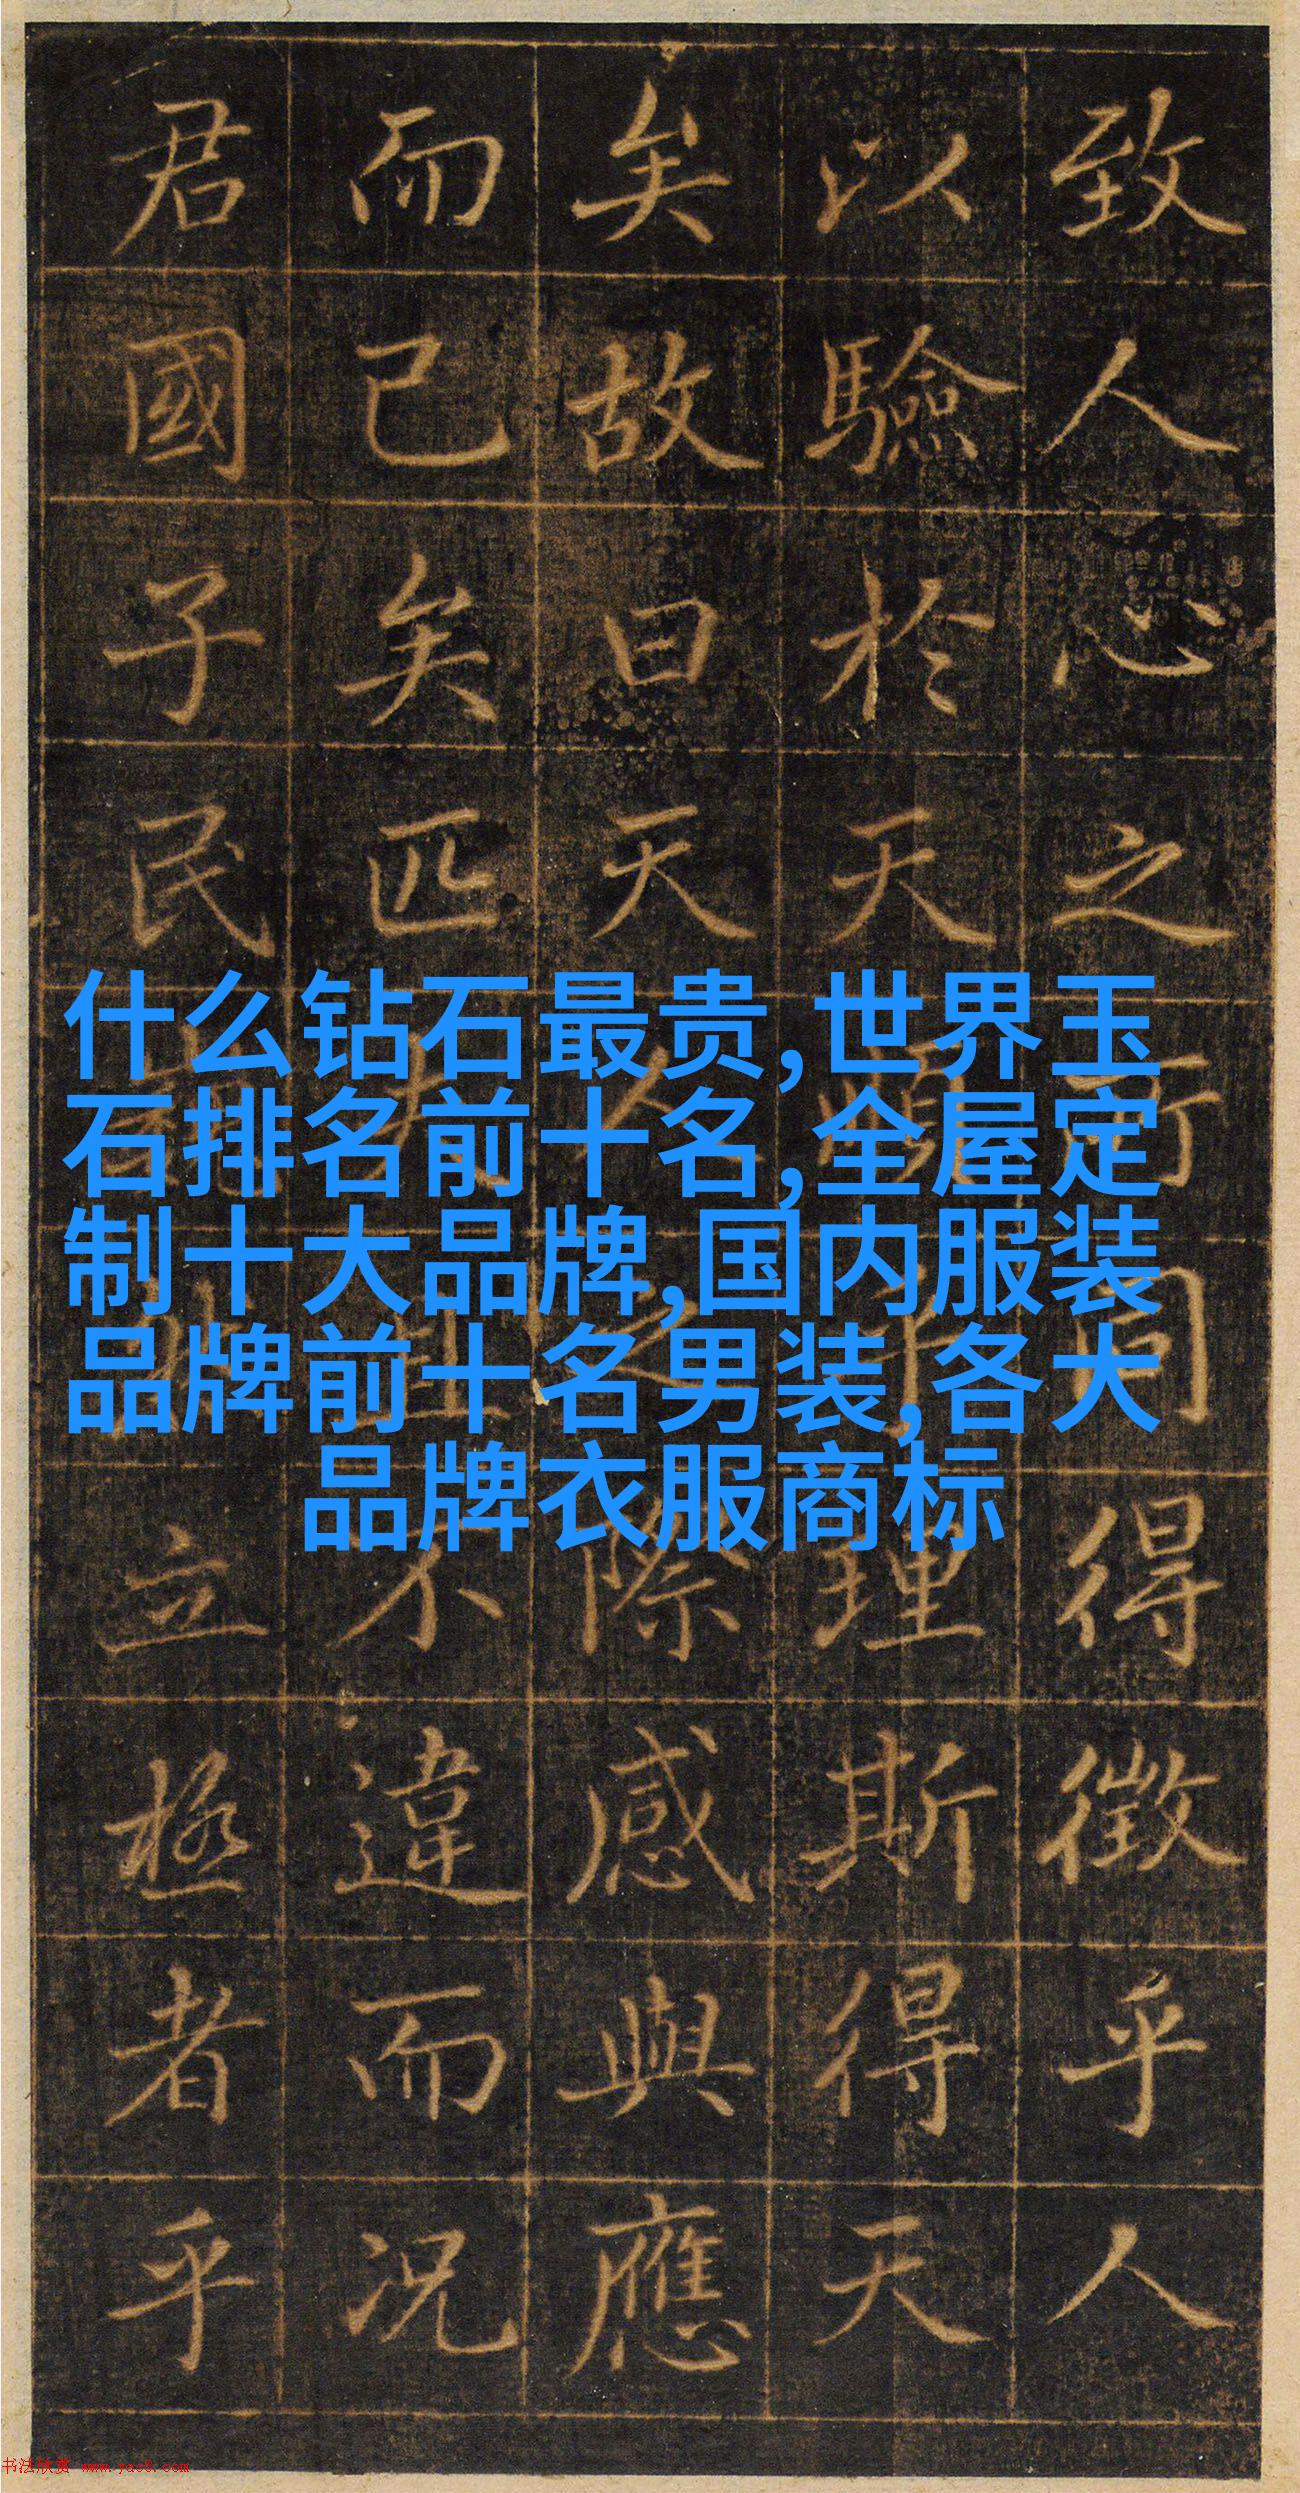 致人心之所同得徵乎人
以驗於天理斯得天
矣故曰天人之際感與應
而已矣匹夫且不違而况
君國子民立極者乎
什么钻石最贵,世界玉
石排名前十名,全屋定
制十大品牌,国内服装
品牌前十名男装,各大
品牌衣服商标
书法欣赏 www.yac8.com